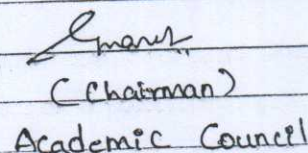 (Chairman)
Academic Council